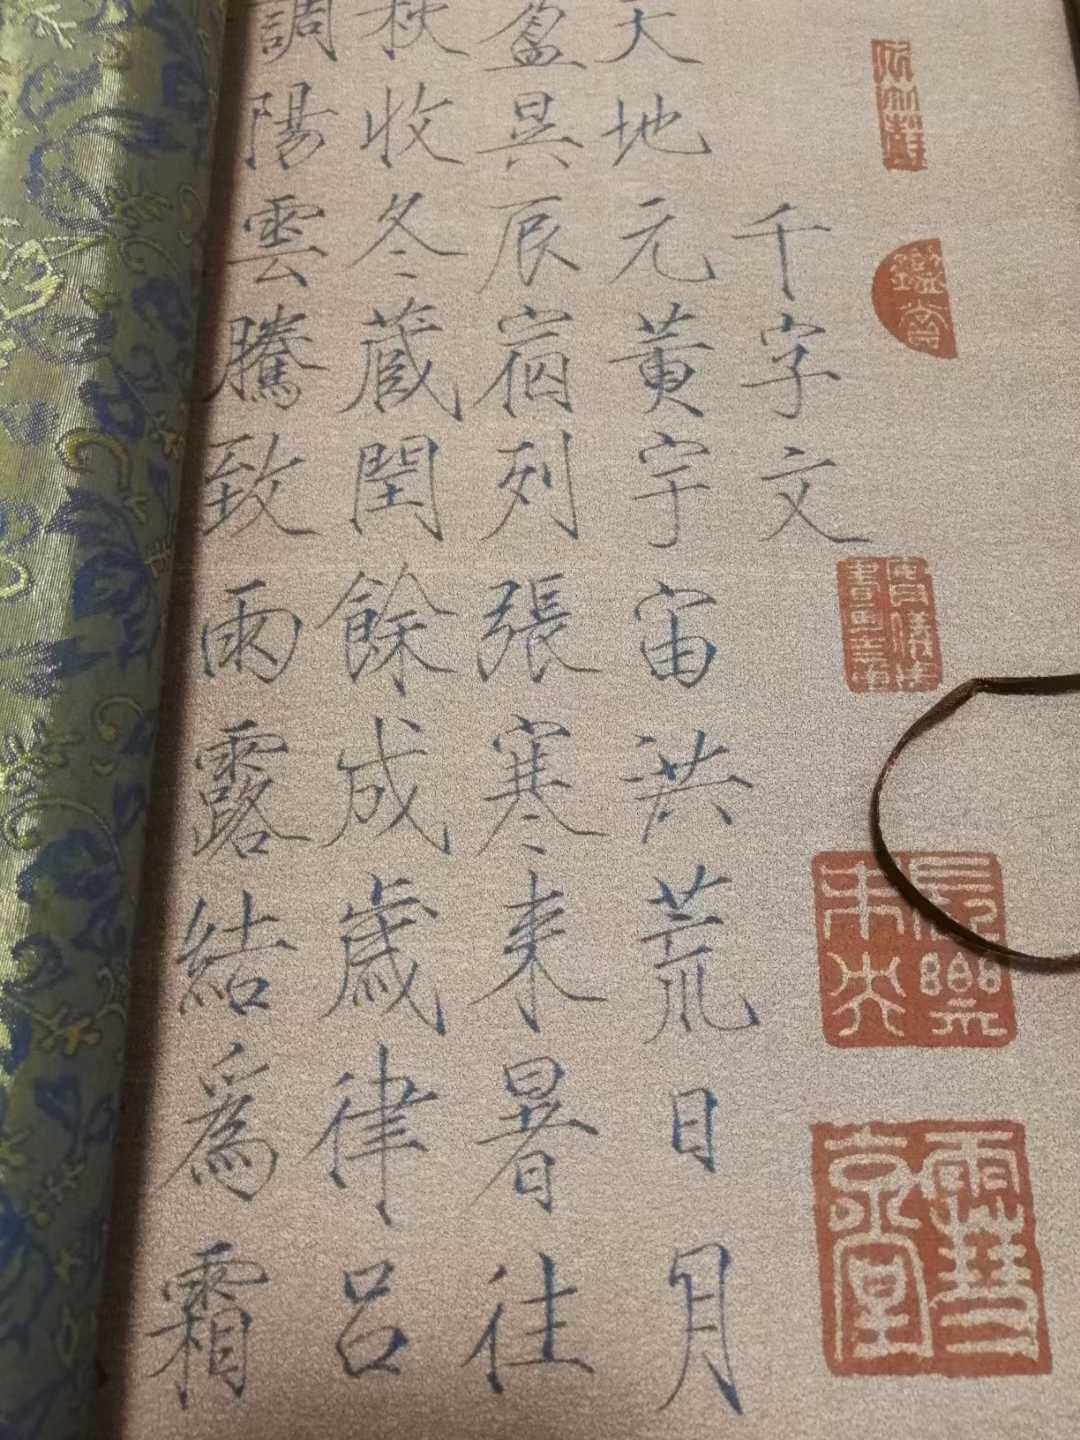 長樂
未央
千字文
天地元黄宇宙洪荒日月
盈昃辰宿列張寒来暑往
秋收冬蔵閏餘成歲律呂
調陽雲騰致雨露結爲霜